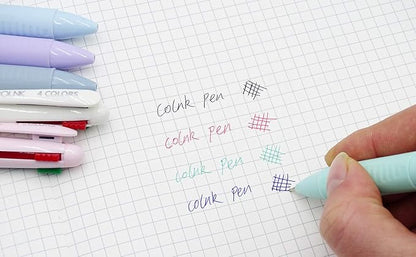 COLNK 4 COLORS
colnk pen
colnk pen
colnk pen
colnk pen